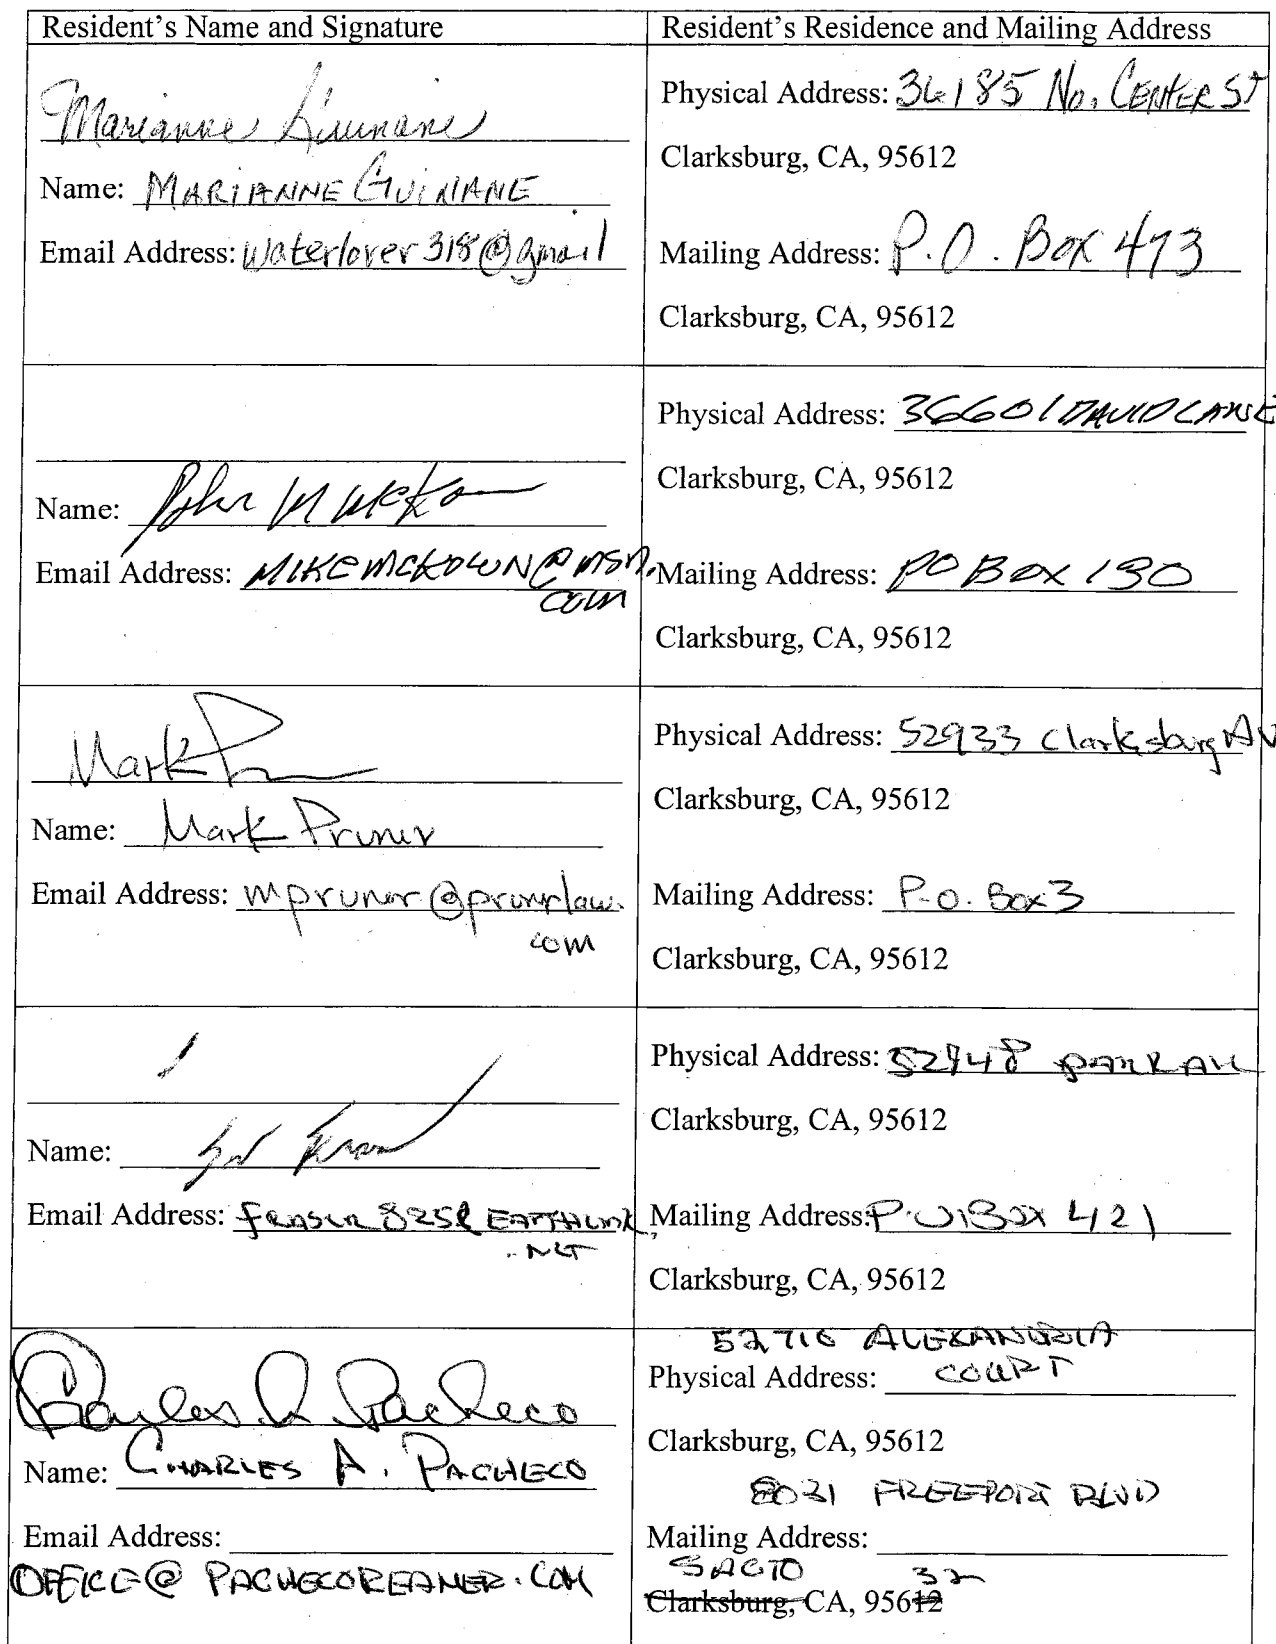 Resident's Name and Signature
Resident's Residence and Mailing Address
Marianne Guinane
Name: MARIANNE GUINANE
Email Address: Waterlover318@gmail
Physical Address: 36185 No. CENTER ST
Clarksburg, CA, 95612
Mailing Address: P.O. Box 473
Clarksburg, CA, 95612
Name: John M McKo
Email Address: MIKEMCKOWN@MSN.
COM
Physical Address: 36601 DAVID LANE
Clarksburg, CA, 95612
Mailing Address: PO BOX 130
Clarksburg, CA, 95612
Mark P
Name: Mark Pruner
Email Address: mpruner@prunerlaw.
com
Physical Address: 52933 Clarksburg AV
Clarksburg, CA, 95612
Mailing Address: P.O. Box 3
Clarksburg, CA, 95612
Name:
Email Address: EARTHLINK
.NET
Physical Address: PARK AV
Clarksburg, CA, 95612
Mailing Address: P.O. BOX 421
Clarksburg, CA, 95612
Charles A Pacheco
Name: CHARLES A. PACHECO
Email Address:
OFFICE@
52716 ALEXANDRIA
Physical Address: COURT
Clarksburg, CA, 95612
8031 FREEPORT BLVD
Mailing Address:
SACTO 32
Clarksburg, CA, 95612